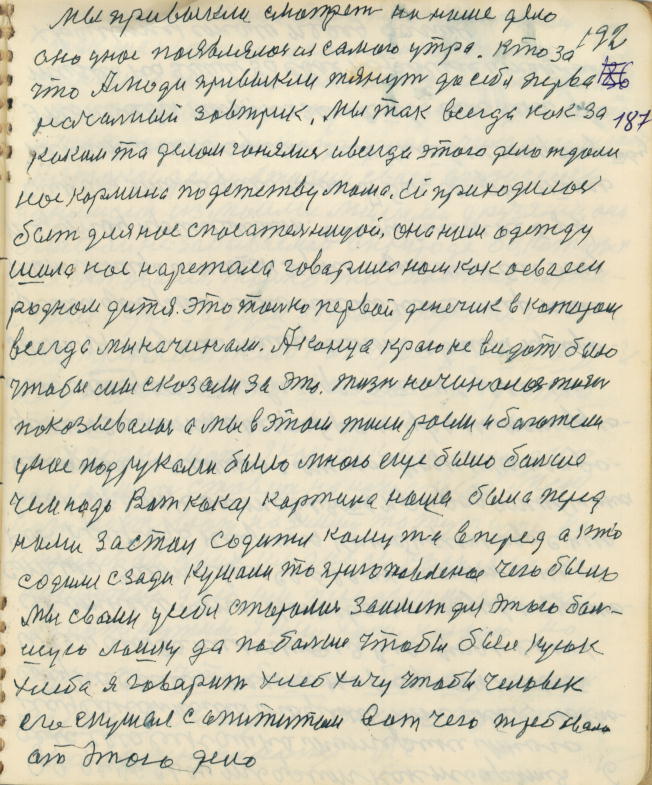 мы привыкли смотрет на наше дело
оно унас появлялося из самого утра. Кто за 192
что А люди привыкли тянут до себя перва 186
начальный завтрик, мы так всегда как за 187
каком та делом гонялися ивсегда этого дело ждали
нас кормила подетству мама. ей приходилос
быт для нас спасателницой, она нам одежду
шила нас наретала говарила нам как освоем
родном дитя. это толко первой денечик в котором
всегда мы начинали. А конца краю не видат было
чтобы мы сказали за это. жизн началася
показывалас а мы в этом жили росли и богатели
унас подруками было много еще было болше
чем надо Вот какая картина наша была перед
нами за стол содили кому жа вперед а кто
содили сзади кушали то приготовленое чего было
мы сваи усеби старалис заимет для этого бал-
шую ложку да поболше чтобы был кусок
хлеба я говарит хлеб хочу чтобы человек
его скушал с аппититам вот чего требовала
от этого дело